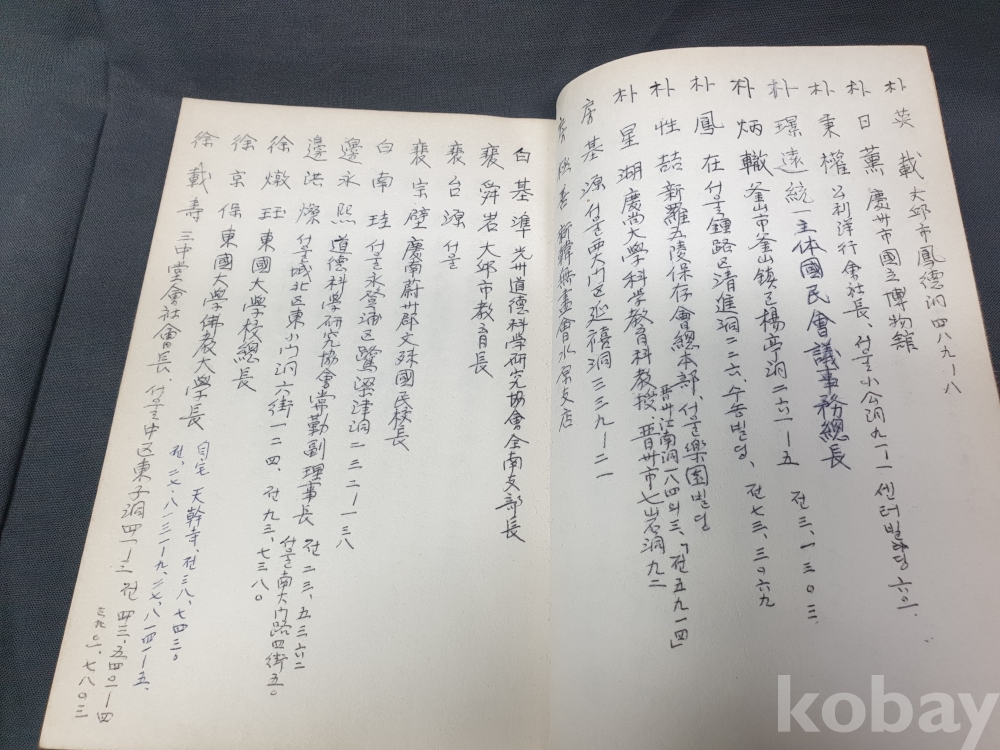 朴英載 大邱市鳳德洞四八九ー八
朴日薰 慶州市國立博物館
朴東權 公利洋行會社長、서울小公洞九一ー一 센터빌딩 六〇一
朴璟遠 統一主体國民會議事務總長 전三、一三〇三
朴炳轍 釜山市釜山鎭区楊亭洞二六一ー五
朴鳳在 서울鍾路区清進洞二二六、수송빌딩、전七三、三〇六九
朴性喆 新羅五陵保存會總本部、서울樂園빌딩
朴星湖 慶尙大學科学教育科教授、晋州市七岩洞九二
晋州江南洞一八四의三、「전五九一四」
房基源 서울西大門区 禧洞三三九ー二一
會水原支店
白基準 光州道德科学研究協會全南支部長
裵舜岩 大邱市教育長
裵台源 서울
裵宗壁 慶南蔚州郡文殊國民校長
白南珪 서울永登浦区鷺梁津洞二三二ー一三八
邊永熙 道德科学研究協會常勤副理事長 전二三、五三六二
邊洪燦 서울城北区東小門洞六街一二四、전九三、七三八〇
서울南大門路四街五〇
徐燉珏 東國大学校總長
徐京保 東國大学佛教大学長 自宅 天幹寺、전三八、七四三〇
전、二七、八一三一ー九、二七、八一四一ー五、
徐載壽 三中堂會社會長、서울中区東子洞四一ー三 전四三、五四〇一ー四
三九〇一、七八〇三
kobay